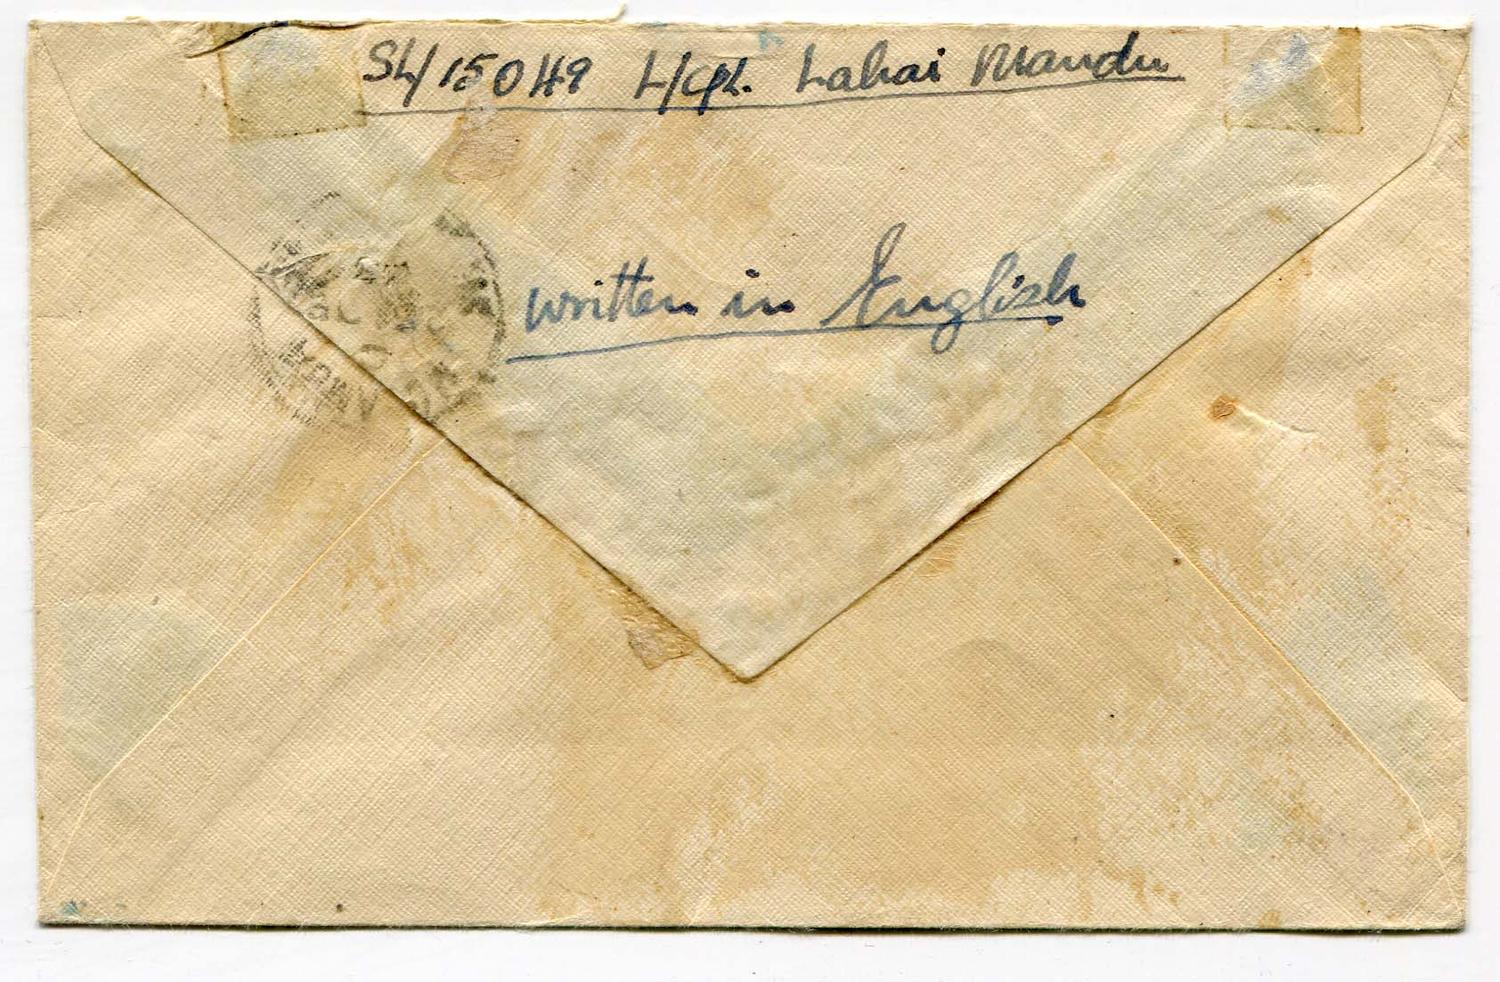 SL/15049 L/Cpl. Lahai Mandu
written in English